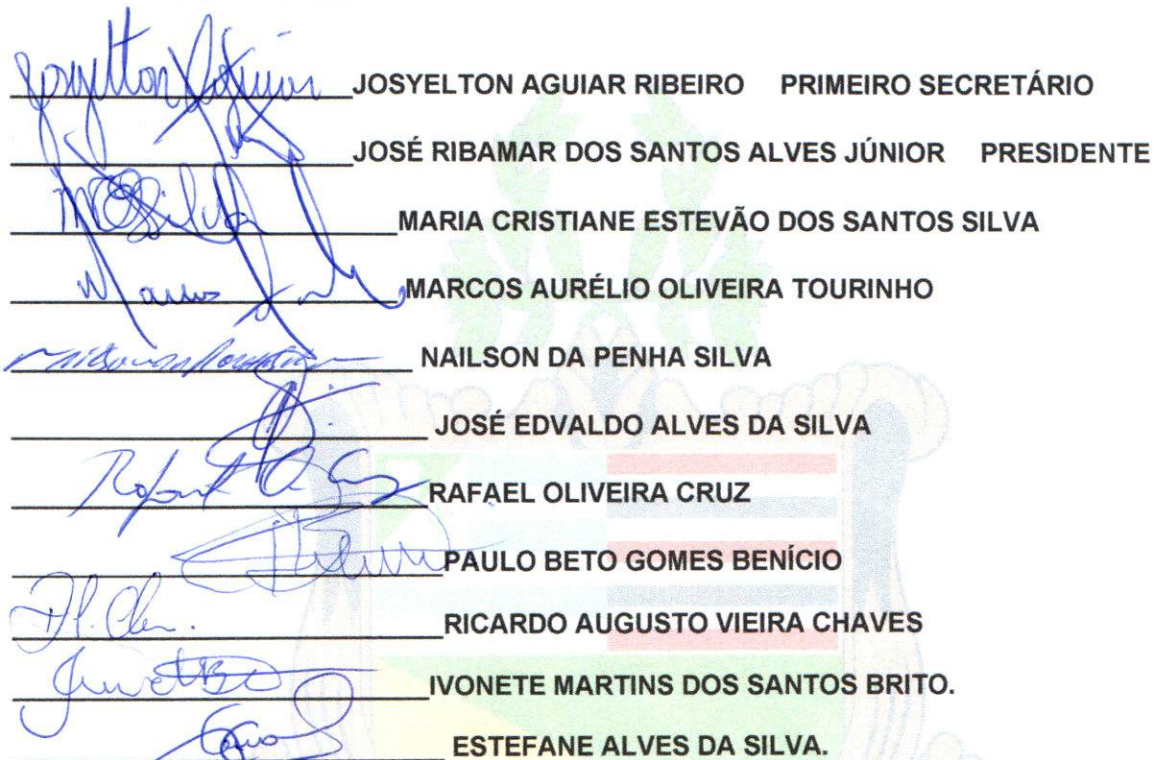 Josyelton Aguiar JOSYELTON AGUIAR RIBEIRO PRIMEIRO SECRETÁRIO
JOSÉ RIBAMAR DOS SANTOS ALVES JÚNIOR PRESIDENTE
MCSilva MARIA CRISTIANE ESTEVÃO DOS SANTOS SILVA
Marcos MARCOS AURÉLIO OLIVEIRA TOURINHO
NAILSON DA PENHA SILVA
JOSÉ EDVALDO ALVES DA SILVA
RAFAEL OLIVEIRA CRUZ
PAULO BETO GOMES BENÍCIO
RICARDO AUGUSTO VIEIRA CHAVES
IVONETE MARTINS DOS SANTOS BRITO.
ESTEFANE ALVES DA SILVA.